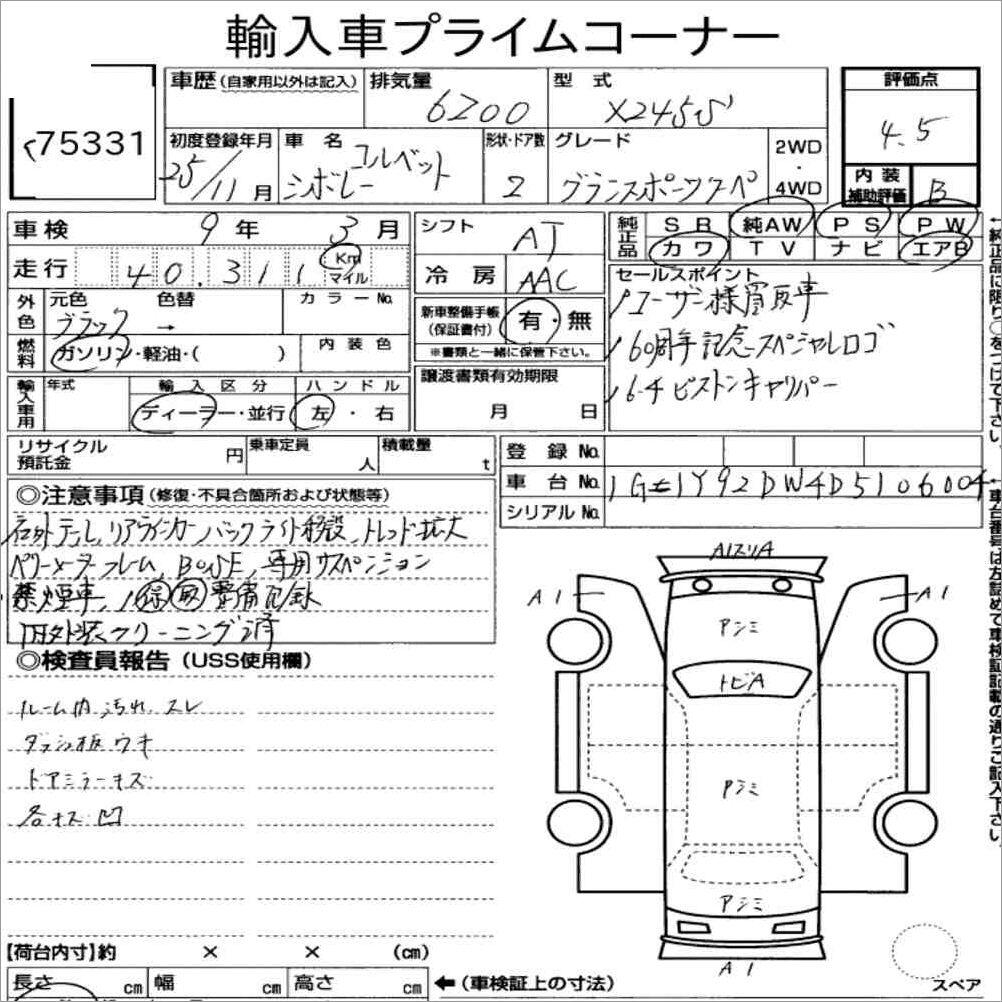 輸入車プライムコーナー
75331
車歴(自家用以外は記入)
排気量
6200
型 式
X245S
評価点
4.5
初度登録年月
25/11月
車 名
シボレー コルベット
形状・ドア数
2
グレード
グランスポーツクーペ
2WD
・
4WD
内 装
補助評価
B
車検 9年 3月
シフト
AT
純正品
SR 純AW PS PW
カワ TV ナビ エアB
走行 40.311 Km
マイル
冷房
AAC
セールスポイント
ユーザー様買取車
60周年記念スペシャルロゴ
6-4ピストンキャリパー
外色
元色 ブラック
色替 →
カラーNo.
新車整備手帳
(保証書付)
有・無
※書類と一緒に保管下さい。
燃料
ガソリン・軽油・( )
内装色
譲渡書類有効期限
月 日
輸入車用
年式
輸入区分
ディーラー・並行
ハンドル
左・右
リサイクル
預託金 円
乗車定員 人
積載量 t
登録No.
車台No. 1G#1Y92DW4D5106004
シリアルNo.
◎注意事項(修復・不具合箇所および状態等)
リアウインカー バックライト移設、トレッド拡大
フレーム、BOSE、専用サスペンション
禁煙車、保 取 整備記録
内外装クリーニング済
◎検査員報告(USS使用欄)
ルーム内 汚れ スレ
ダッシュ板 ウキ
ドアミラーキズ
各キズ凹
A1
A1
アシミ
トビA
アシミ
アシミ
A1
スペア
【荷台内寸】約 × × (cm)
長さ cm 幅 cm 高さ cm
←(車検証上の寸法)
←純正品に限り○をつけて下さい。
←車台番号は左詰めで車検証記載の通りご記入下さい。